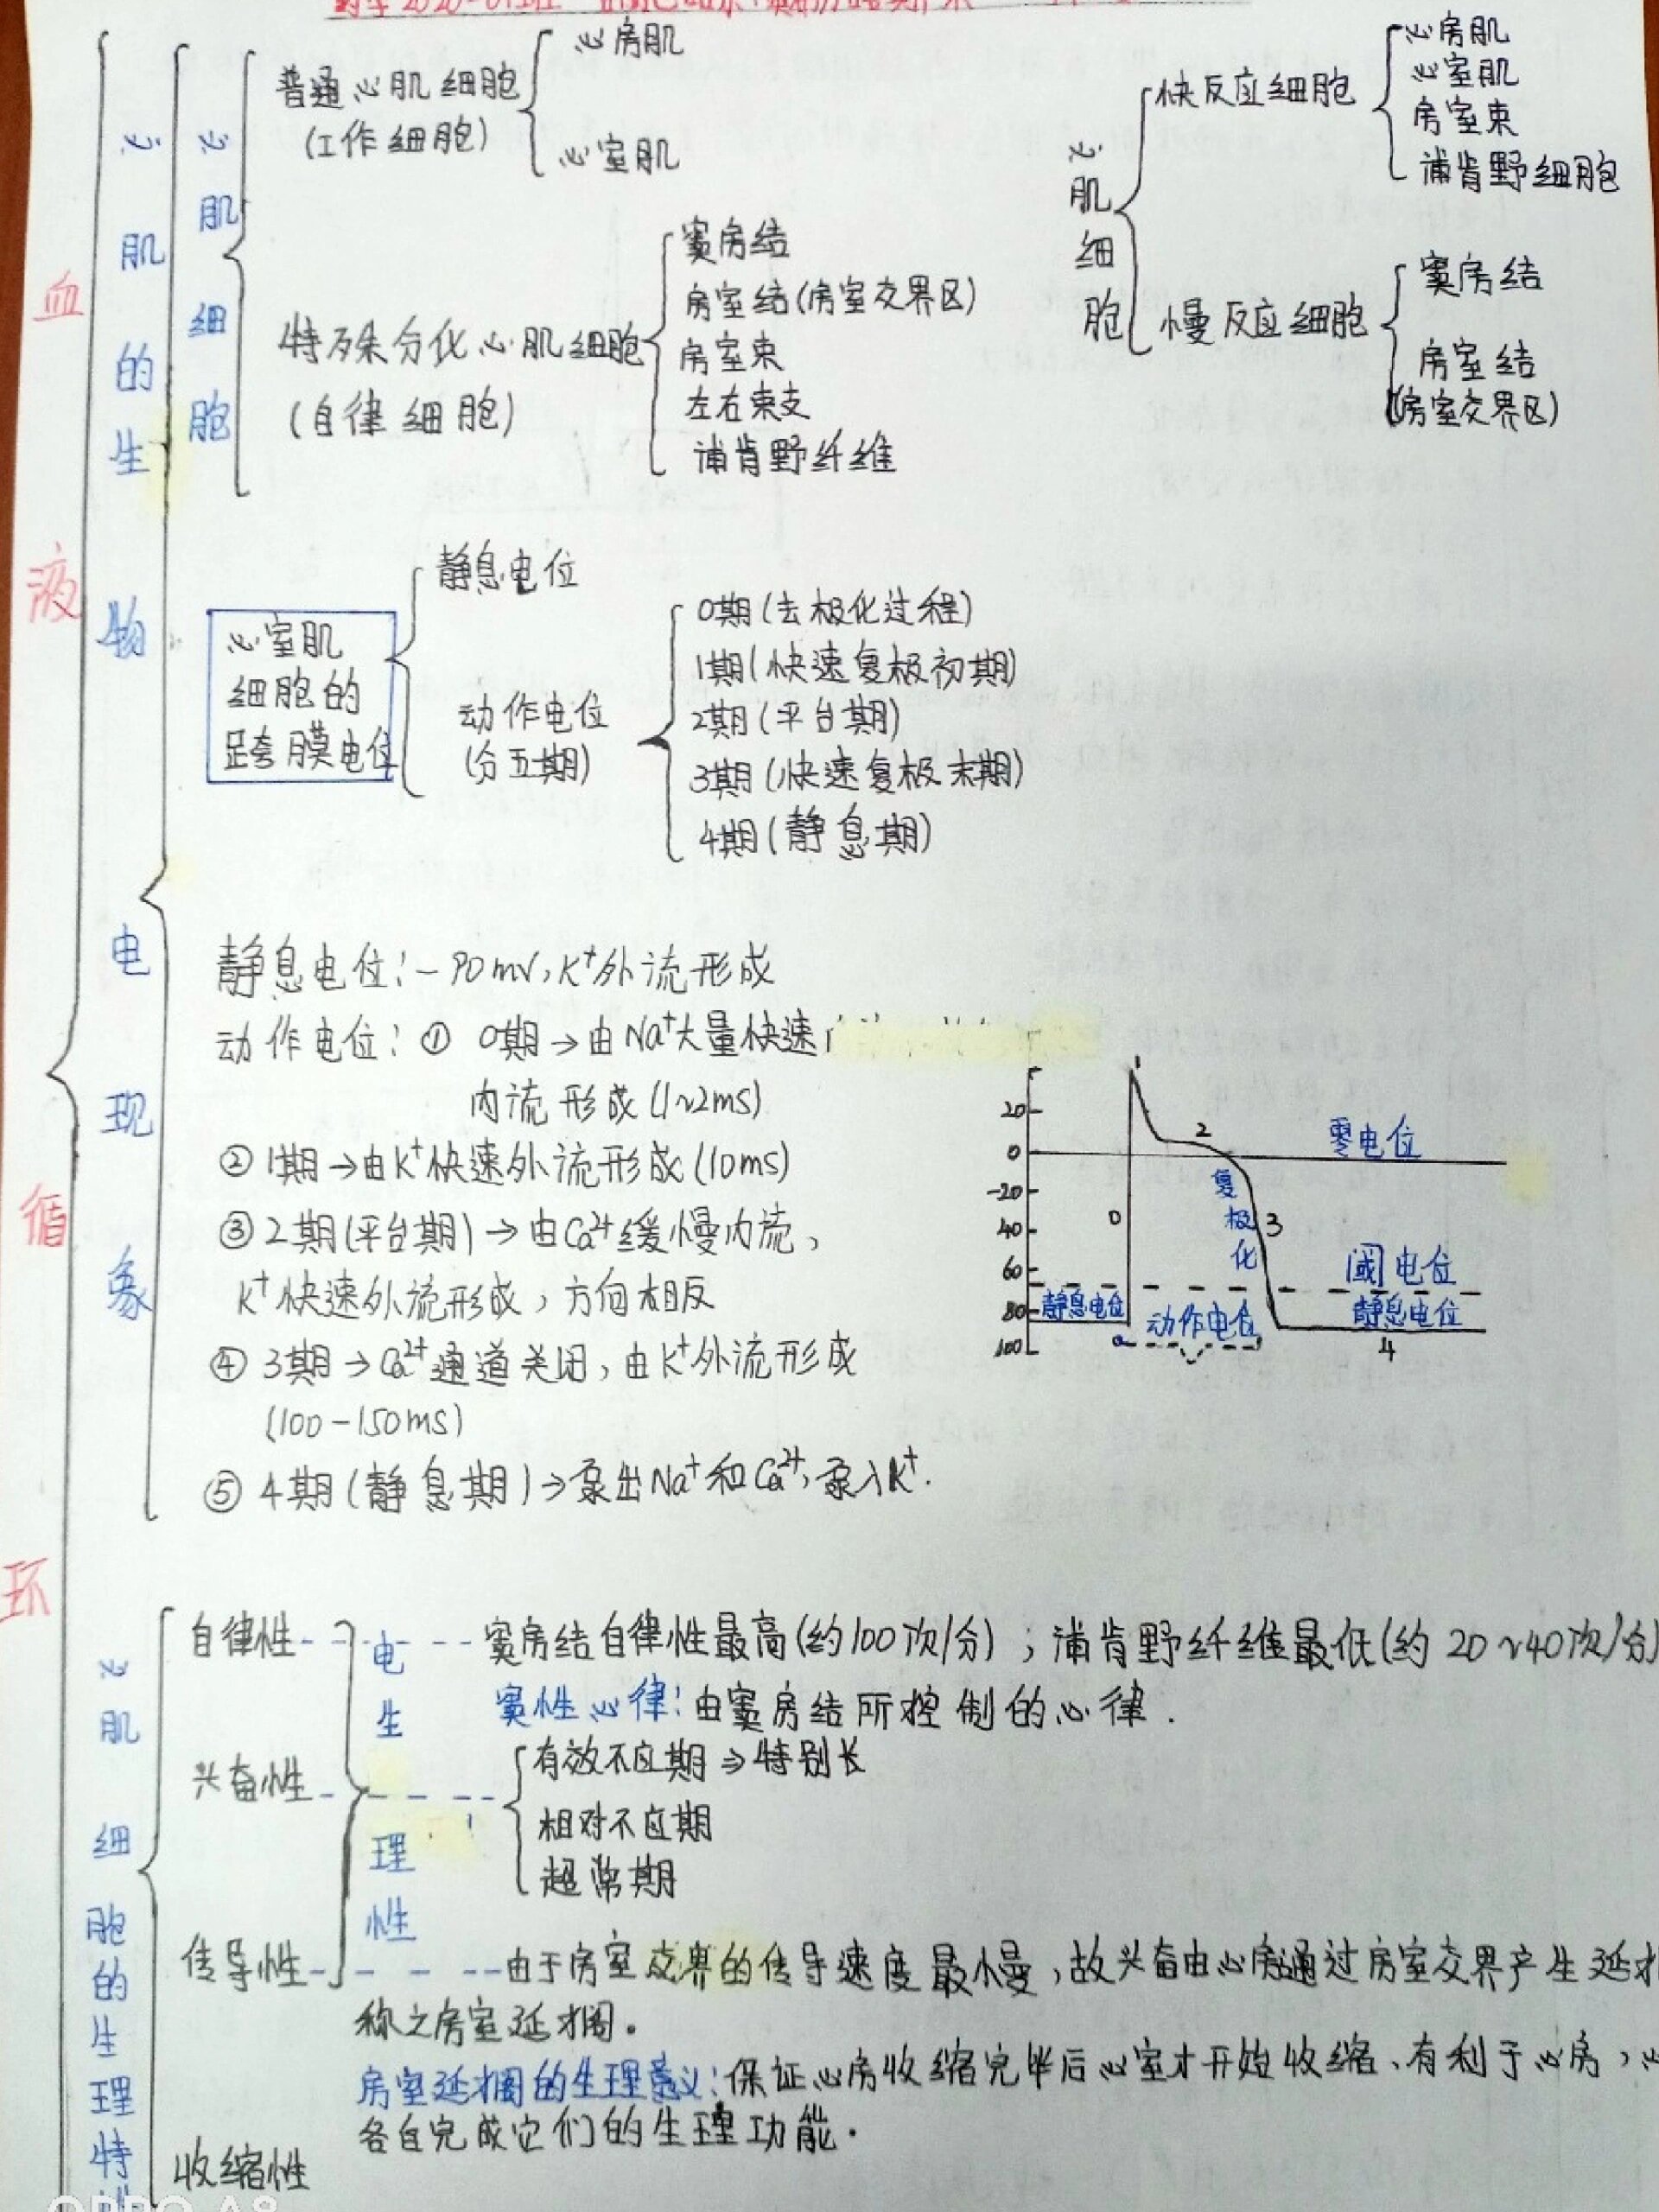 血液循环
心肌的生物电现象
心肌细胞
普通心肌细胞
(工作细胞)
心房肌
心室肌
特殊分化心肌细胞
(自律细胞)
窦房结
房室结(房室交界区)
房室束
左右束支
浦肯野纤维
心肌细胞
快反应细胞
心房肌
心室肌
房室束
浦肯野细胞
慢反应细胞
窦房结
房室结
(房室交界区)
心室肌
细胞的
跨膜电位
静息电位
动作电位
(分五期)
0期(去极化过程)
1期(快速复极初期)
2期(平台期)
3期(快速复极末期)
4期(静息期)
静息电位:-90mv,K⁺外流形成
动作电位:① 0期→由Na⁺大量快速
内流形成(1~2ms)
② 1期→由K⁺快速外流形成(10ms)
③ 2期(平台期)→由Ca²⁺缓慢内流,
K⁺快速外流形成,方向相反
④ 3期→Ca²⁺通道关闭,由K⁺外流形成
(100-150ms)
⑤ 4期(静息期)→泵出Na⁺和Ca²⁺,泵入K⁺.
20
0
-20
40
60
80
100
1
2
零电位
0
复极化
3
阈电位
静息电位
动作电位
静息电位
4
心肌细胞的生理特
自律性
电生理性
窦房结自律性最高(约100次/分);浦肯野纤维最低(约20~40次/分)
窦性心律:由窦房结所控制的心律.
兴奋性
有效不应期⇒特别长
相对不应期
超常期
传导性
由于房室交界的传导速度最慢,故兴奋由心房通过房室交界产生延
称之房室延搁。
房室延搁的生理意义:保证心房收缩完毕后心室才开始收缩、有利于心房,心
各自完成它们的生理功能.
收缩性
OPPO A8